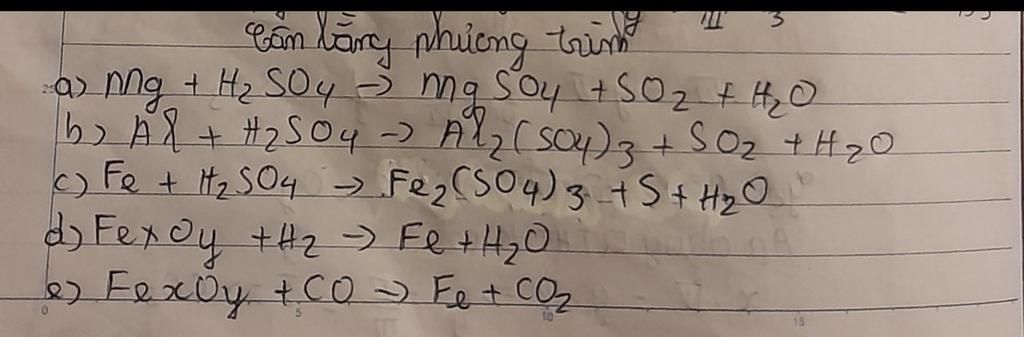 III 3
Cân bằng phương trình
a) Mg + H2SO4 → MgSO4 + SO2 + H2O
b) Al + H2SO4 → Al2(SO4)3 + SO2 + H2O
c) Fe + H2SO4 → Fe2(SO4)3 + S + H2O
d) FexOy + H2 → Fe + H2O
e) FexOy + CO → Fe + CO2
0 5 10 15